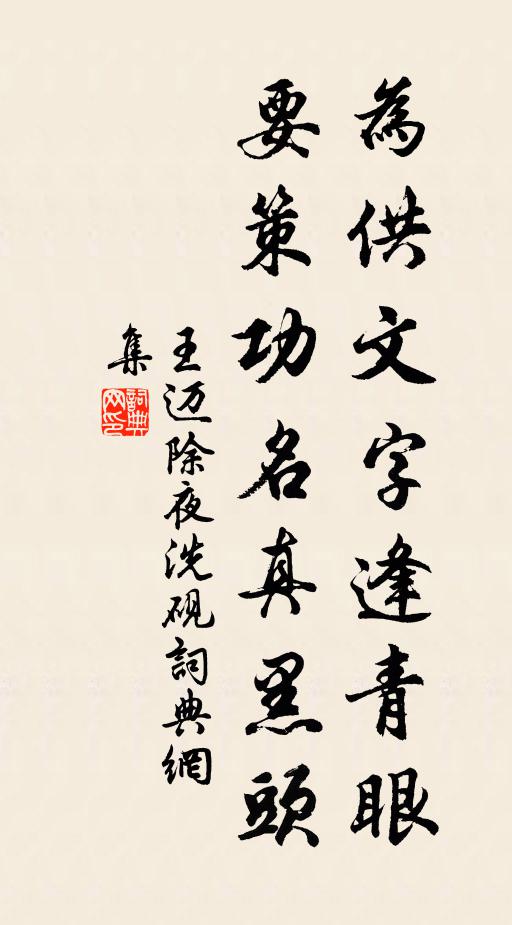 為供文字逢青眼
要策功名真黑頭
王迈除夜洗硯詞典網
集
詞典
网印